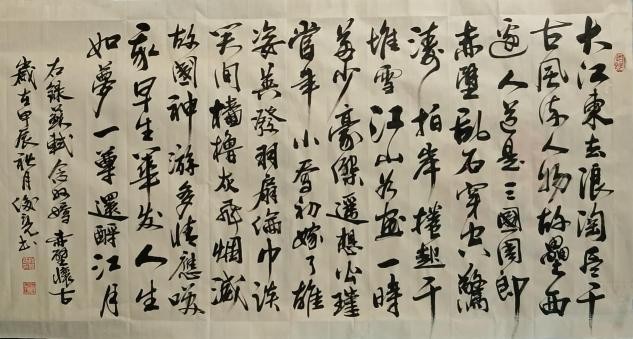 大江東去浪淘盡千
古風流人物故壘西
邊人道是三國周郎
赤壁亂石穿空驚
濤拍岸捲起千
堆雪江山如畫一時
多少豪傑遙想公瑾
當年小喬初嫁了雄
姿英發羽扇綸巾談
笑間檣櫓灰飛烟滅
故國神游多情應笑
我早生華发人生
如夢一尊還酹江月
右錄蘇軾念奴嬌赤壁懷古
歲在甲辰秋月